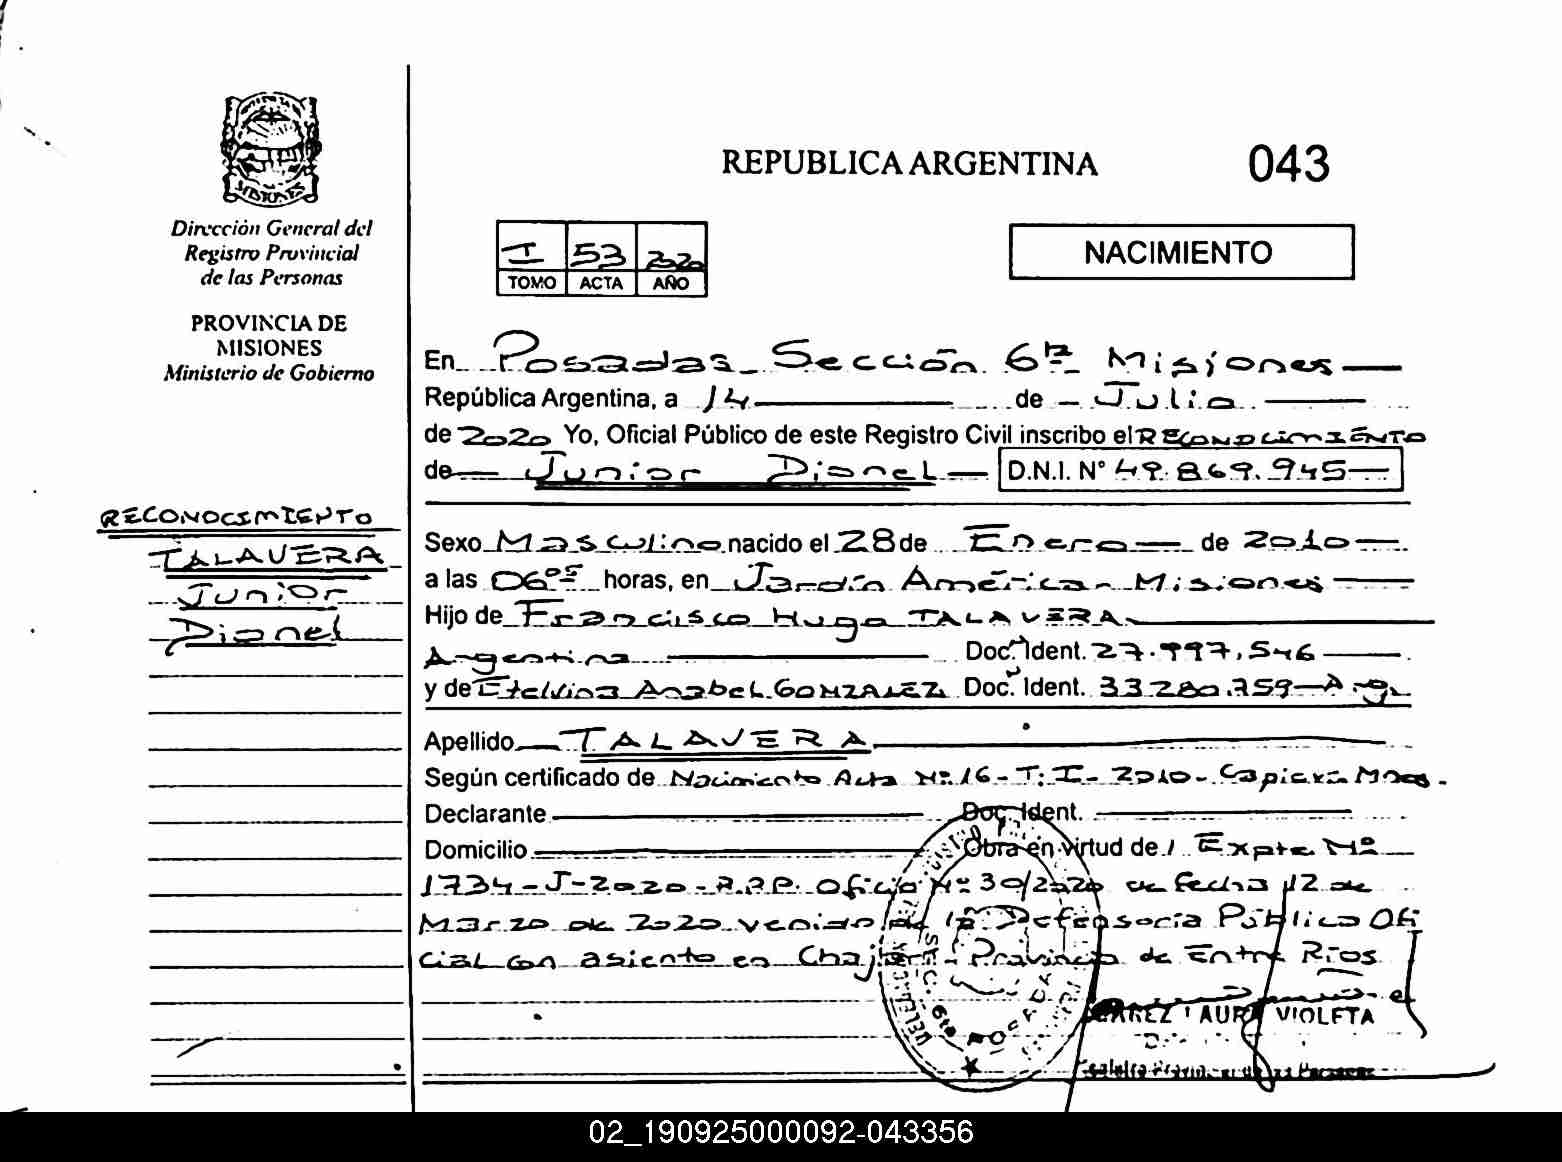 MISIONES
Dirección General del
Registro Provincial
de las Personas
PROVINCIA DE
MISIONES
Ministerio de Gobierno
RECONOCIMIENTO
TALAVERA
Junior
Dionel
REPUBLICA ARGENTINA 043
I 53 2020
TOMO ACTA AÑO
NACIMIENTO
En Posadas Sección 6ta Misiones
República Argentina, a 14 de Julio
de 2020 Yo, Oficial Público de este Registro Civil inscribo el RECONOCIMIENTO
de Junior Dionel D.N.I. N° 49.869.945
Sexo Masculino nacido el 28 de Enero de 2010
a las 06 05 horas, en Jardín América - Misiones
Hijo de Francisco Hugo TALAVERA
Argentina Doc. Ident. 27.997.546
y de Etelvina Anabel GONZALEZ Doc. Ident. 33.280.759 - Arg.
Apellido TALAVERA
Según certificado de Nacimiento Acta Nº 16 - T: I - 2010 - Capioví Mnes.
Declarante Doc. Ident.
Domicilio Obra en virtud de / Expte Nº
1734-J-2020 - R.P.P. Oficio Nº 30/2020 de fecha 12 de
Marzo de 2020 venido de la Defensoría Pública Ofi
cial con asiento en Chajarí - Provincia de Entre Ríos
SEC. 6ta POSADAS
LAURA VIOLETA
02_190925000092-043356